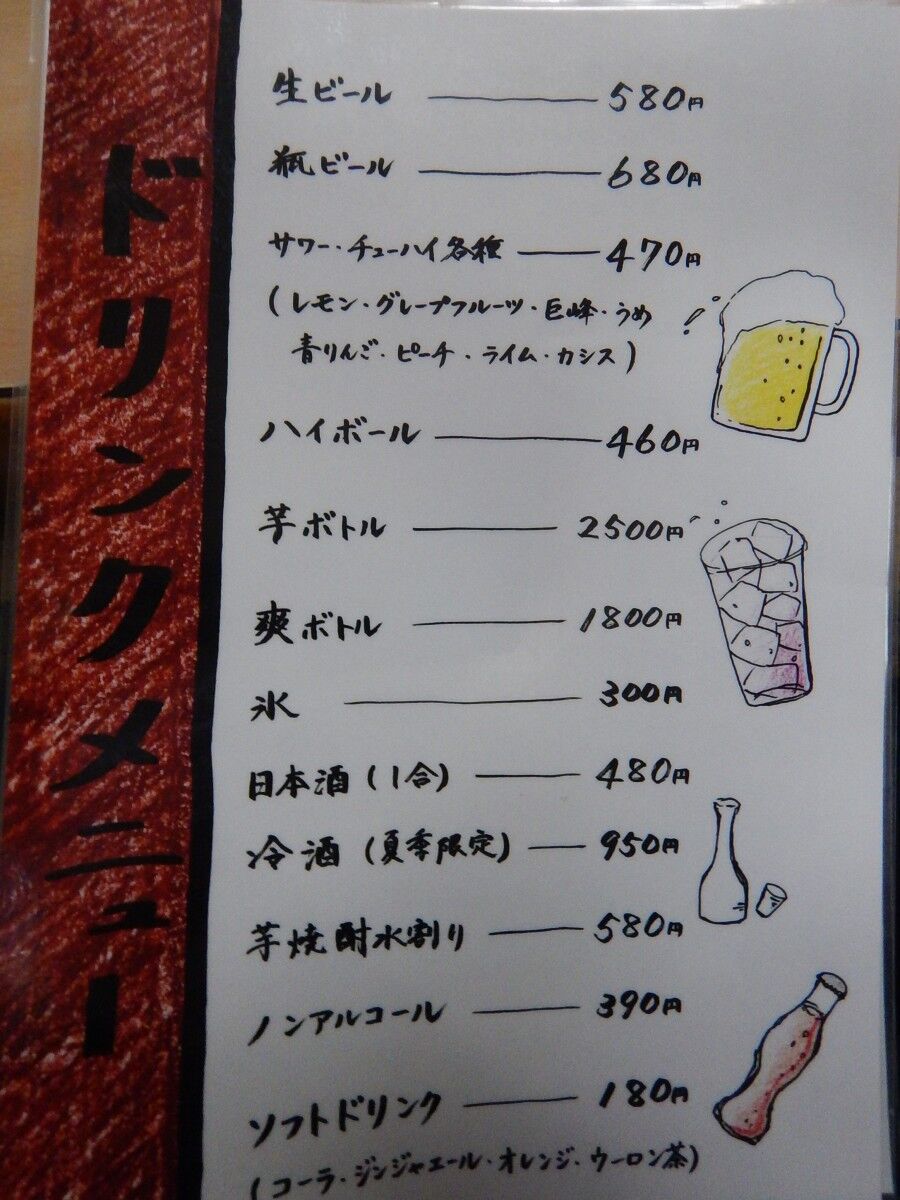 ドリンクメニュー
生ビール 580円
瓶ビール 680円
サワー・チューハイ各種 470円
(レモン・グレープフルーツ・巨峰・うめ
青りんご・ピーチ・ライム・カシス)
ハイボール 460円
芋ボトル 2500円
爽ボトル 1800円
氷 300円
日本酒(1合) 480円
冷酒(夏季限定) 950円
芋焼酎水割り 580円
ノンアルコール 390円
ソフトドリンク 180円
(コーラ・ジンジャエール・オレンジ・ウーロン茶)